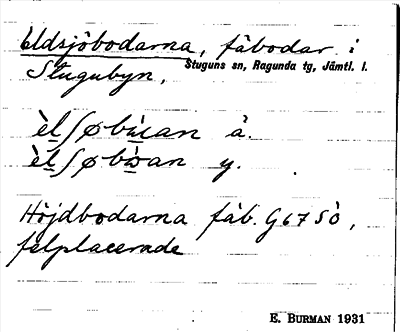 Eldsjöbodarna, fäbodar i
Stugubyn, Stuguns sn, Ragunda tg, Jämtl. l.
å.
y.
Höjdbodarna fäb. G67 SÖ,
felplacerade
E. BURMAN 1931